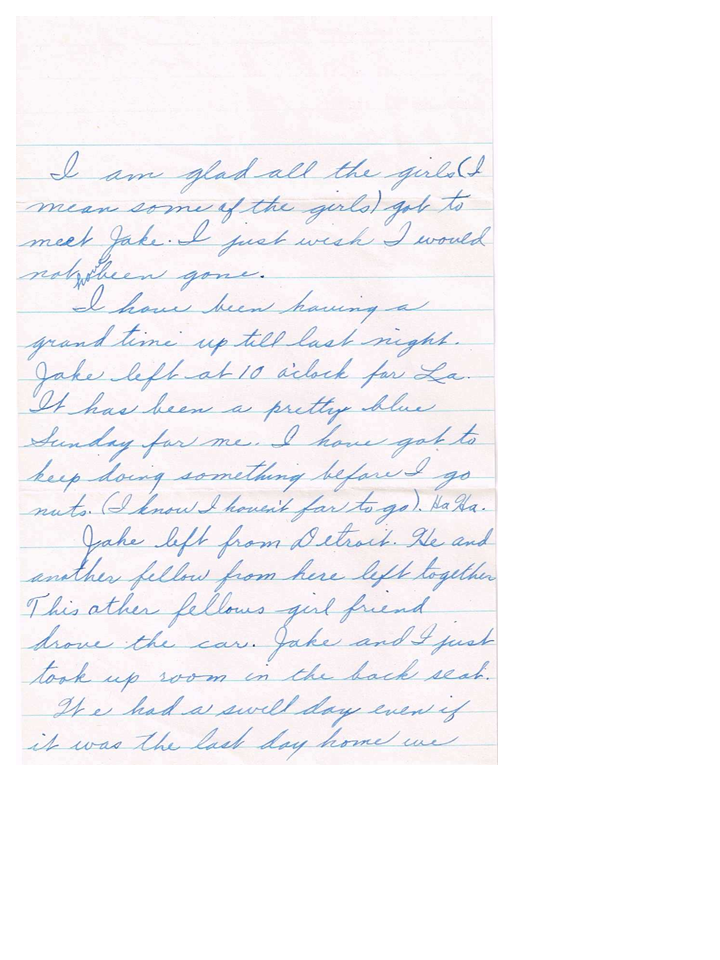 I am glad all the girls (I
mean some of the girls) got to
meet Jake. I just wish I would
not have been gone.
I have been having a
grand time up till last night.
Jake left at 10 o'clock for La.
It has been a pretty blue
Sunday for me. I have got to
keep doing something before I go
nuts. (I know I haven't far to go). Ha Ha.
Jake left from Detroit. He and
another fellow from here left together
This other fellows girl friend
drove the car. Jake and I just
took up room in the back seat.
We had a swell day even if
it was the last day home we